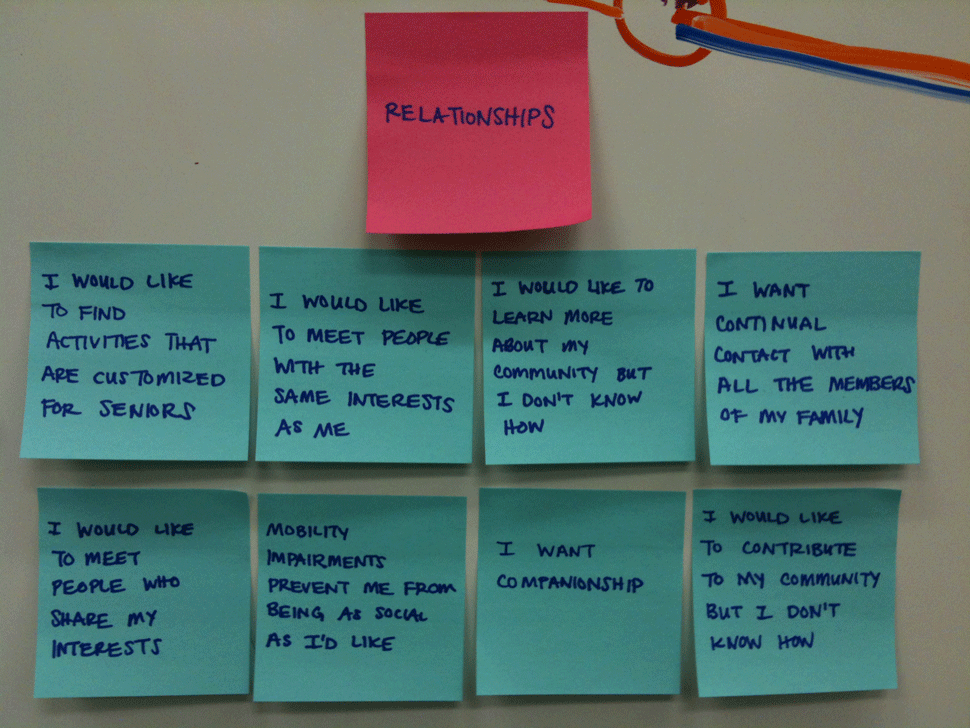 RELATIONSHIPS
I WOULD LIKE
TO FIND
ACTIVITIES THAT
ARE CUSTOMIZED
FOR SENIORS
I WOULD LIKE
TO MEET PEOPLE
WITH THE
SAME INTERESTS
AS ME
I WOULD LIKE TO
LEARN MORE
ABOUT MY
COMMUNITY BUT
I DON'T KNOW
HOW
I WANT
CONTINUAL
CONTACT WITH
ALL THE MEMBERS
OF MY FAMILY
I WOULD LIKE
TO MEET
PEOPLE WHO
SHARE MY
INTERESTS
MOBILITY
IMPAIRMENTS
PREVENT ME FROM
BEING AS SOCIAL
AS I'D LIKE
I WANT
COMPANIONSHIP
I WOULD LIKE
TO CONTRIBUTE
TO MY COMMUNITY
BUT I DON'T
KNOW HOW